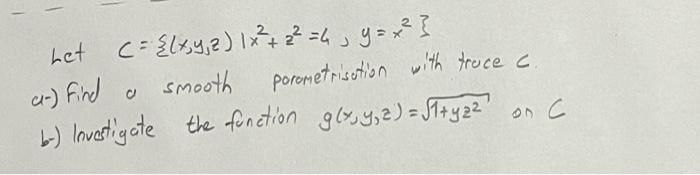 Let C = {(x,y,z) | x² + z² = 4, y = x² }
a-) Find a smooth porometrisation with trace C.
b-) Investigate the function g(x,y,z) = √1+yz² on C